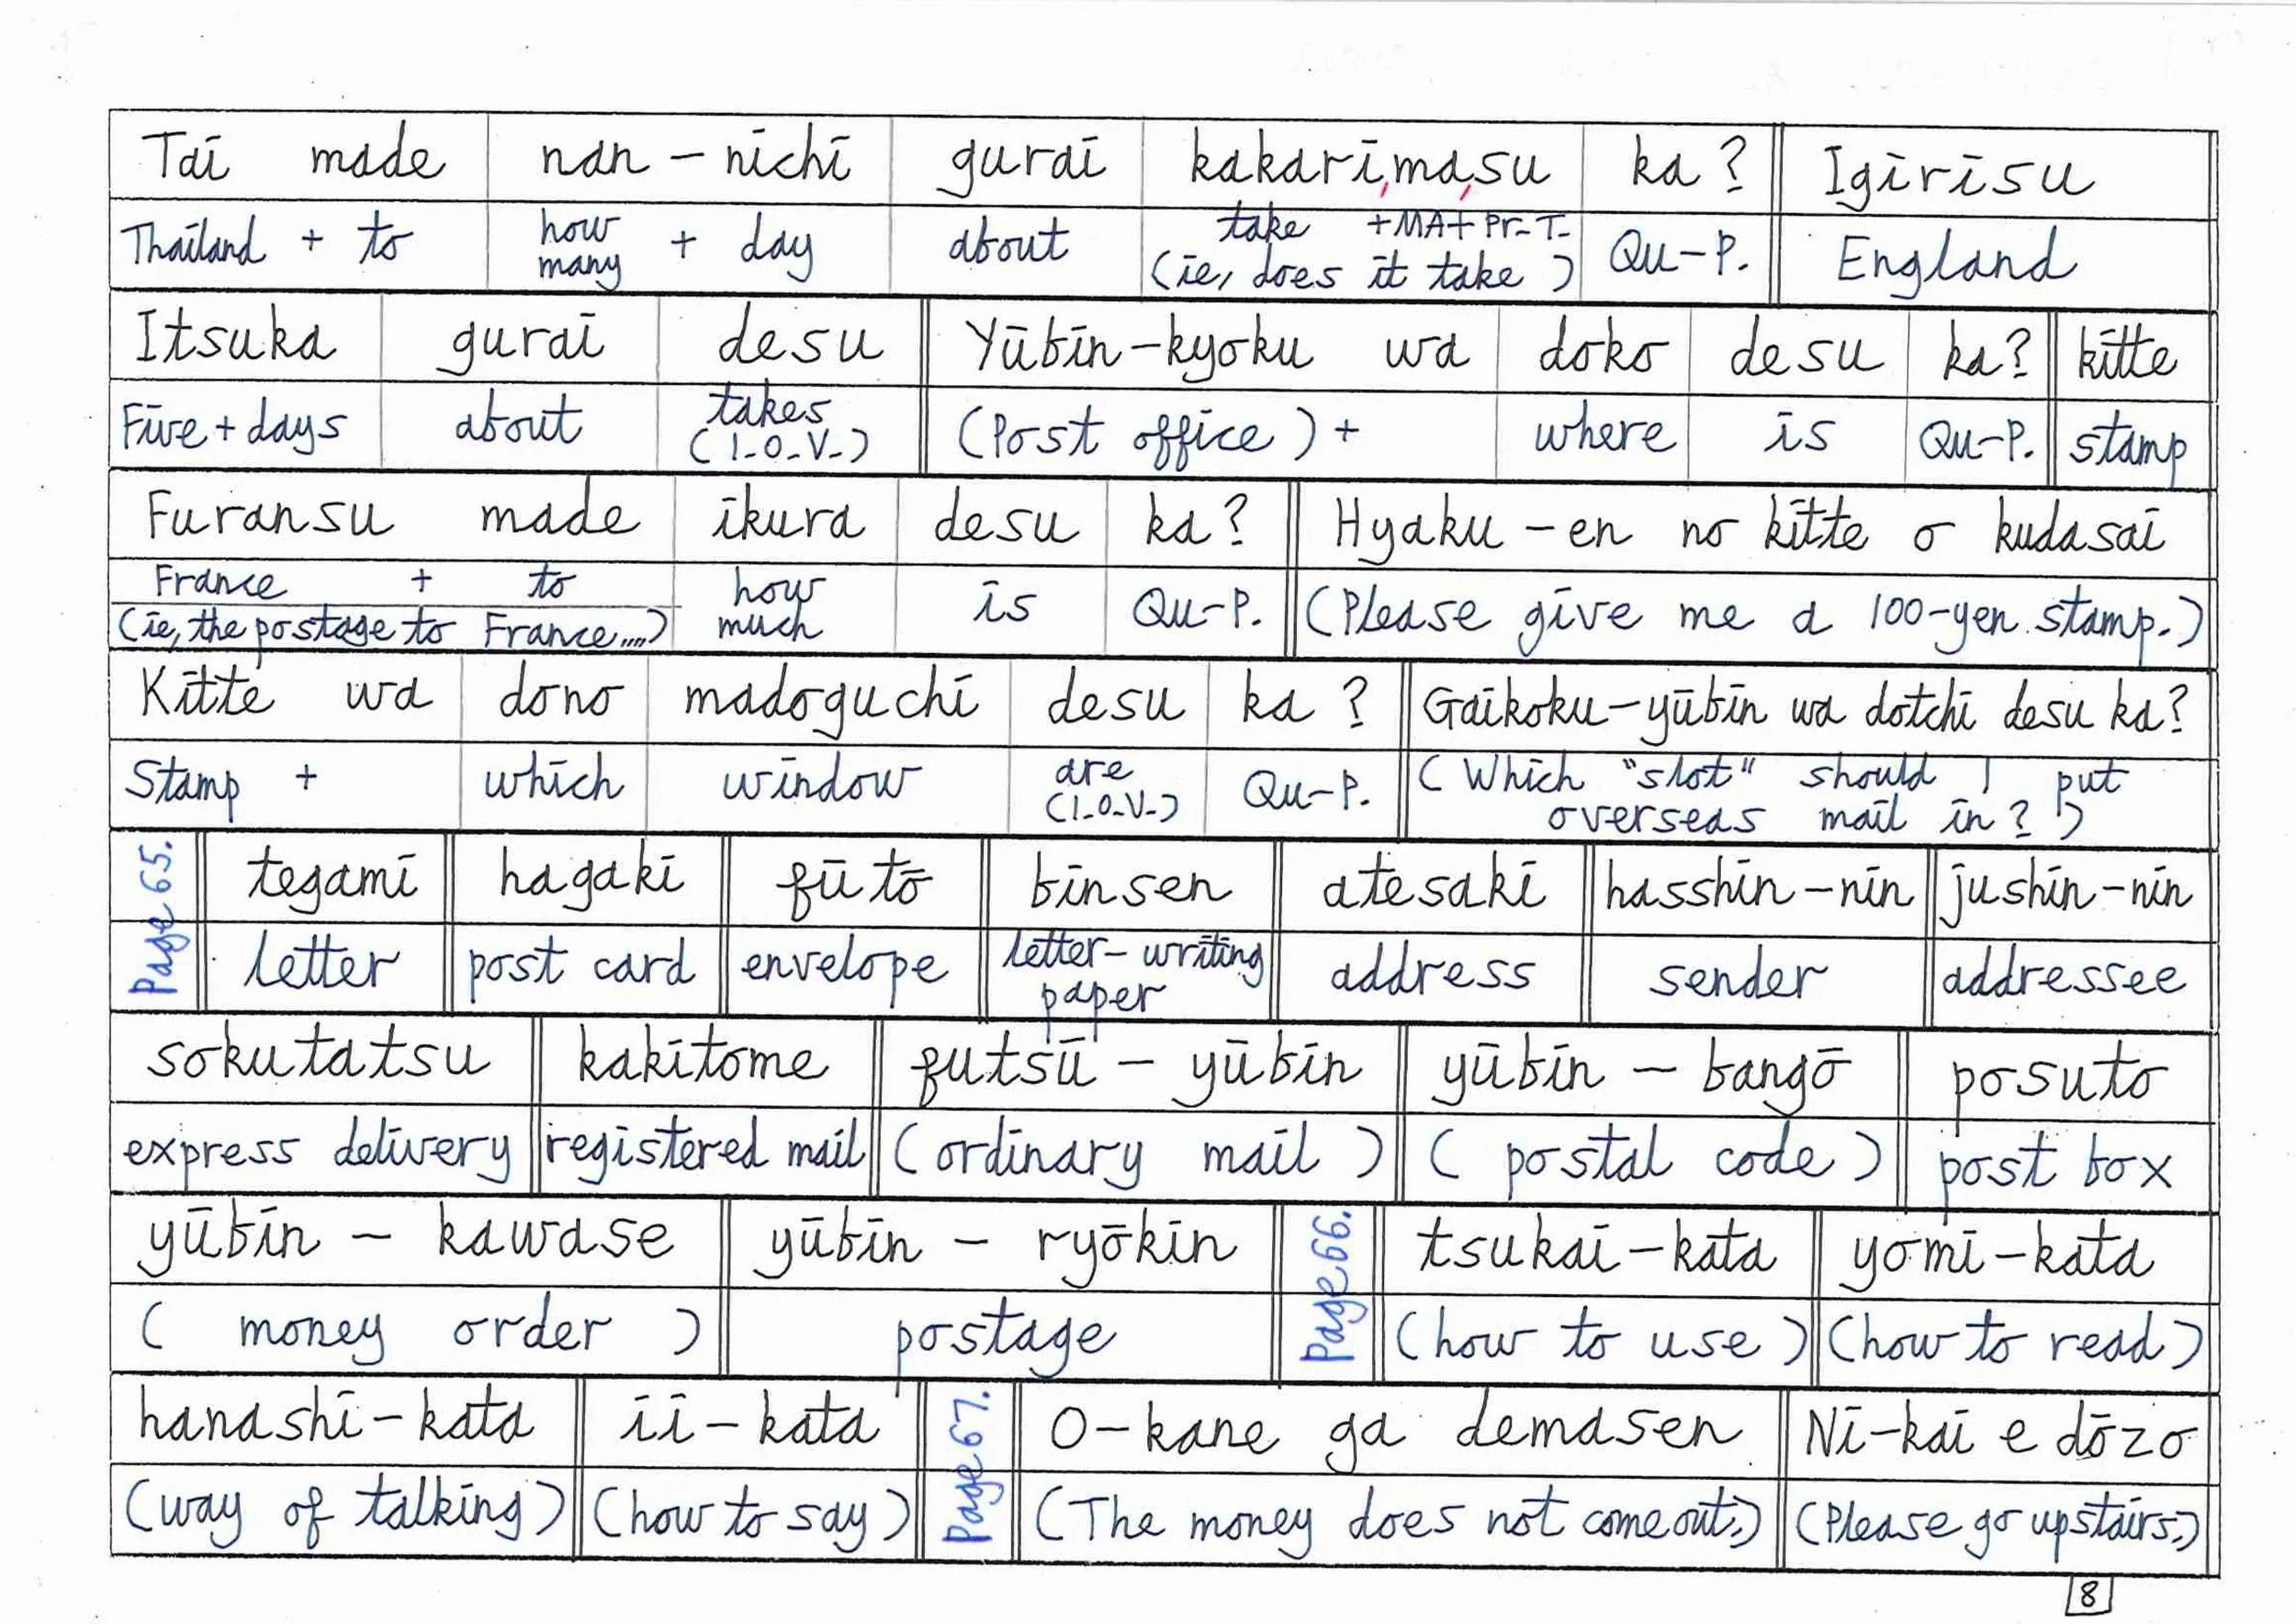 Tai made nan-nichi gurai kakari,ma,su ka? Igirisu
Thailand + to how many + day about take +MA+ Pr-T- (ie, does it take) Qu-P. England
Itsuka gurai desu Yūbin-kyoku wa doko desu ka? kitte
Five + days about takes (I-O-V-) (Post office) + where is Qu-P. stamp
Furansu made ikura desu ka? Hyaku-en no kitte o kudasai
France + to (ie, the postage to France....) how much is Qu-P. (Please give me a 100-yen stamp.)
Kitte wa dono madoguchi desu ka? Gaikoku-yūbin wa dotchi desu ka?
Stamp + which window are (I-O-V-) Qu-P. (Which "slot" should I put overseas mail in?)
Page 65. tegami hagaki fūtō binsen atesaki hasshin-nin jushin-nin
letter post card envelope letter-writing paper address sender addressee
sokutatsu kakitome futsū-yūbin yūbin-bangō posuto
express delivery registered mail (ordinary mail) (postal code) post box
yūbin-kawase yūbin-ryōkin Page 66. tsukai-kata yomi-kata
(money order) postage (how to use) (how to read)
hanashi-kata ii-kata Page 67. O-kane ga demasen Ni-kai e dōzo
(way of talking) (how to say) (The money does not come out.) (Please go upstairs.)
8